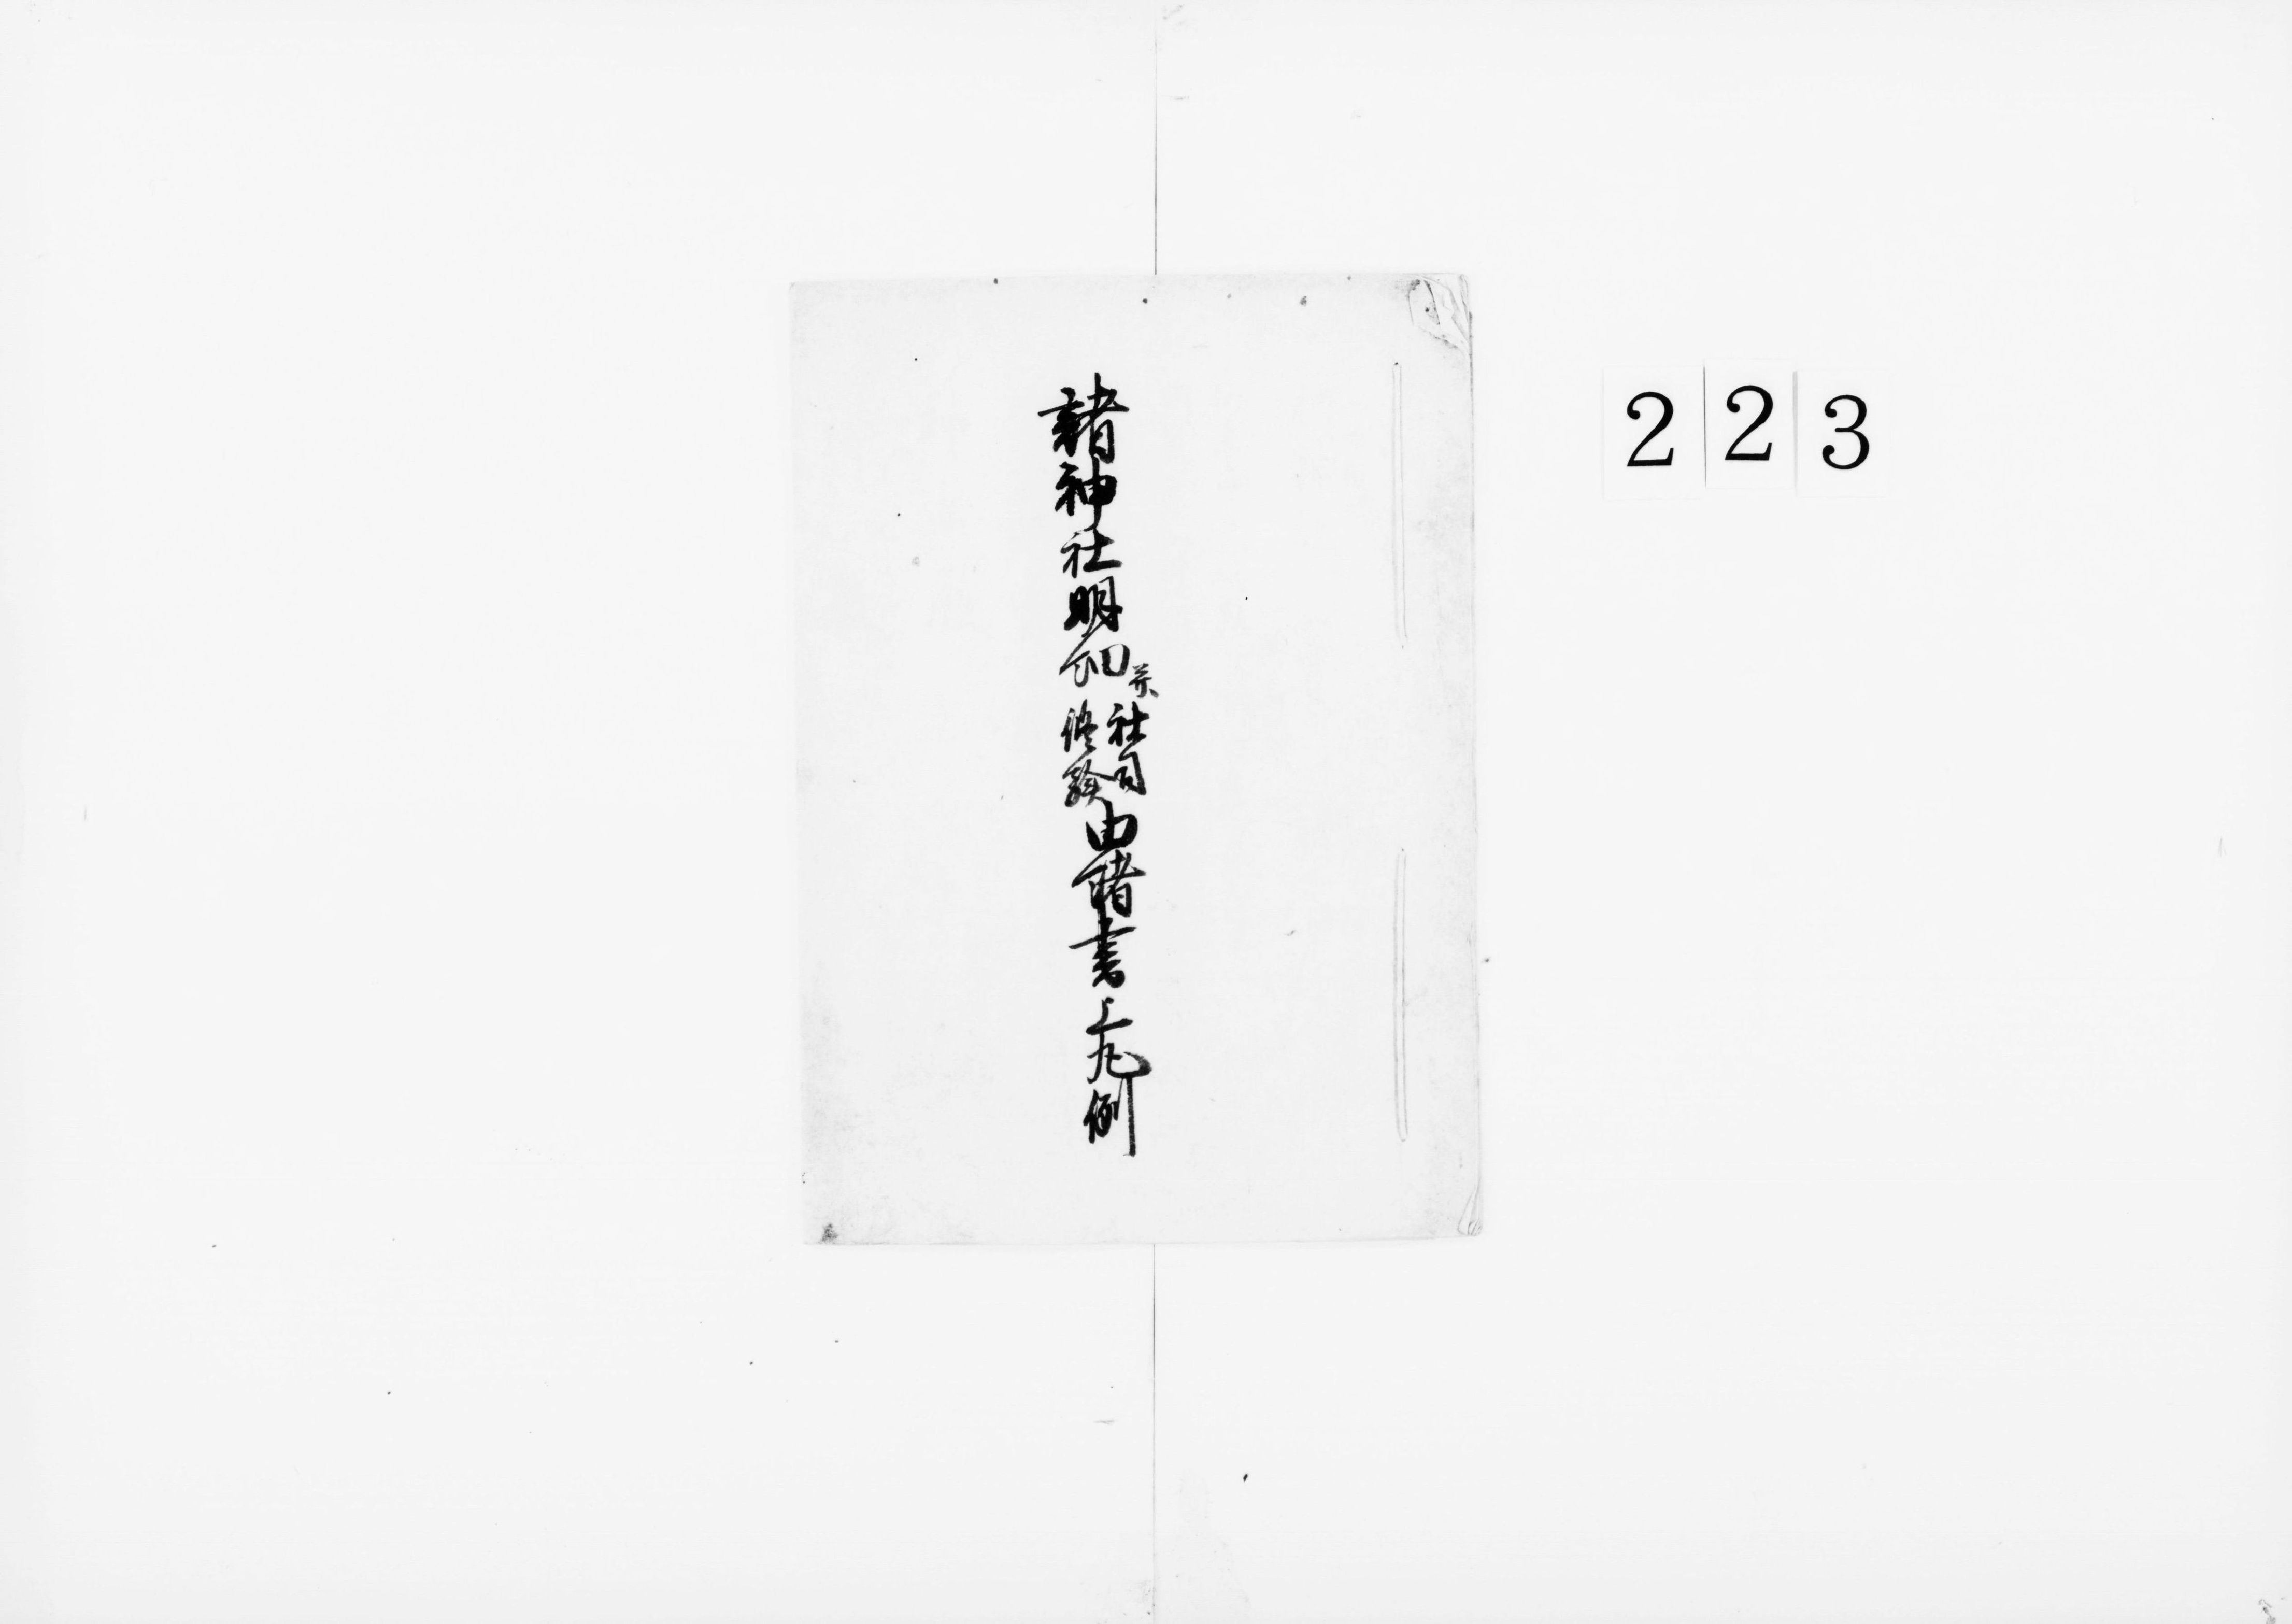 223
諸神社明細并社司修験由緒書上凡例